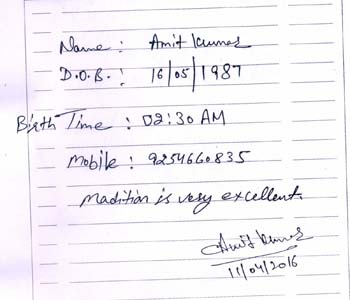 Name : Amit Kumar
D.O.B. : 16/05/1987
Birth Time : 02:30 AM
Mobile : 9254660835
Madition is very excellent.
Amit Kumar
11/04/2016